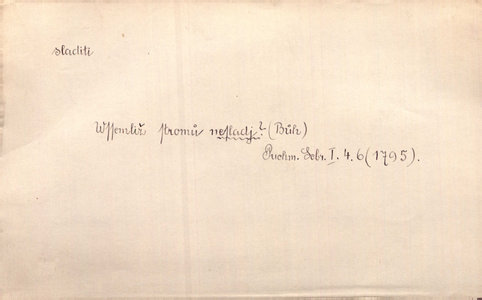 sladiti
Wssemliž stromů nesladj? (Bůh)
Puchm. Sebr. I. 4. 6 (1795).